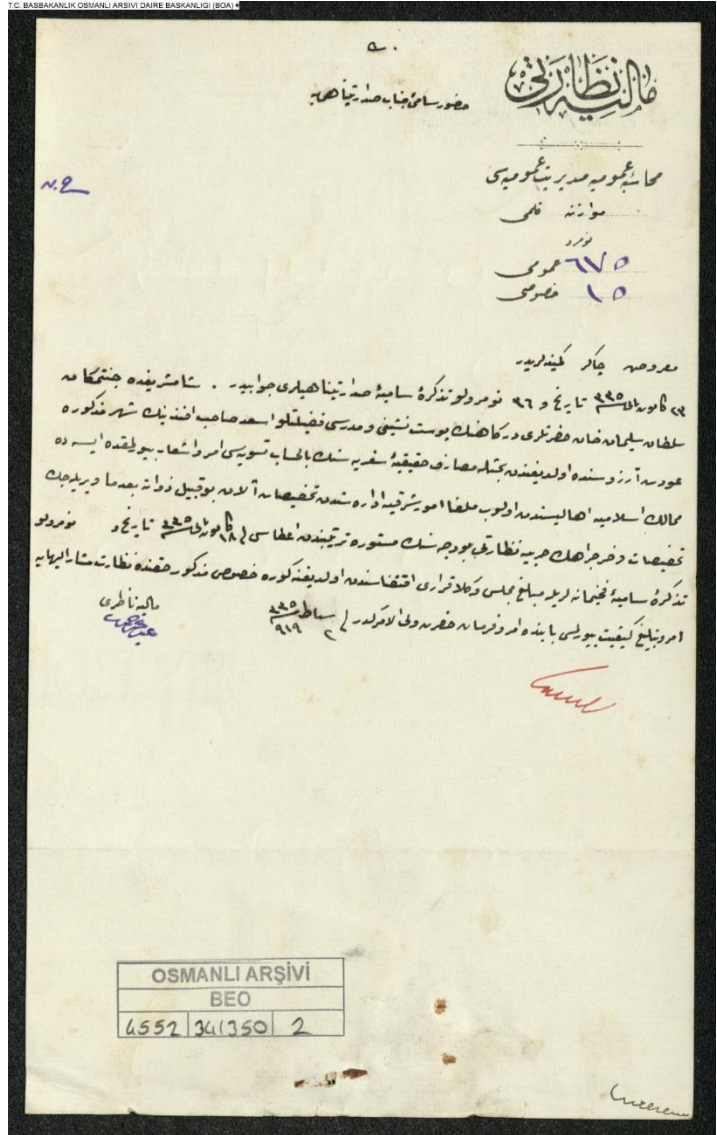 T.C. BASBAKANLIK OSMANLI ARSIVI DAIRE BASKANLIGI (BOA)
مالیه نظارتی
حضور سامئ جناب صدارتپناهی‌یه
محاسبهٔ عمومیه مدیریت عمومیه‌سی
موازنه قلمی
نومرو
عمومی ٦٧٥
خصوصی ١٥
معروض چاکر کمینه‌لریدر
٢٣ کانون ثانی ٣٣٥ تاریخ و ٣٦ نومرولو تذکرهٔ سامیهٔ صدارتپناهیلری جوابیدر . شام شریفده جنتمکان
سلطان سلیمان خان حضرتلری درکاهنك پوست نشینی و مدرسی فضیلتلو اسعد صاحب افندینك شهر مذکوره
عودت آرزوسنده اولدیغندن بحثله مصارف حقیقیهٔ سفریه سنك بالحساب تسویه‌سی امر و اشعار بیورلمقده ایسه ده
ممالك اسلامیه اهالیسندن اولوب ملغا امور شرقیه اداره سندن تخصیصات آلان بو قبیل ذواته بعدما ویریله‌جك
تخصیصات و خرجراهك حربیه نظارتی بودجه سنك مستوره ترتیبندن اعطاسی ١٨ کانون ثانی ٣٣٥ تاریخ و نومرولو
تذکرهٔ سامیهٔ فخیمانه لریله مبلغ مجلس وکلا قراری اقتضاسندن اولدیغنه کوره خصوص مذکور حقنده نظارت مشار الیهایه
امر و تبلیغ کیفیت بیورلمسی بابنده امر و فرمان حضرت ولی الامرکدر ٢ شباط ٣٣٥
٩١٩
مالیه ناظری
OSMANLI ARŞİVİ
BEO
4552 341350 2